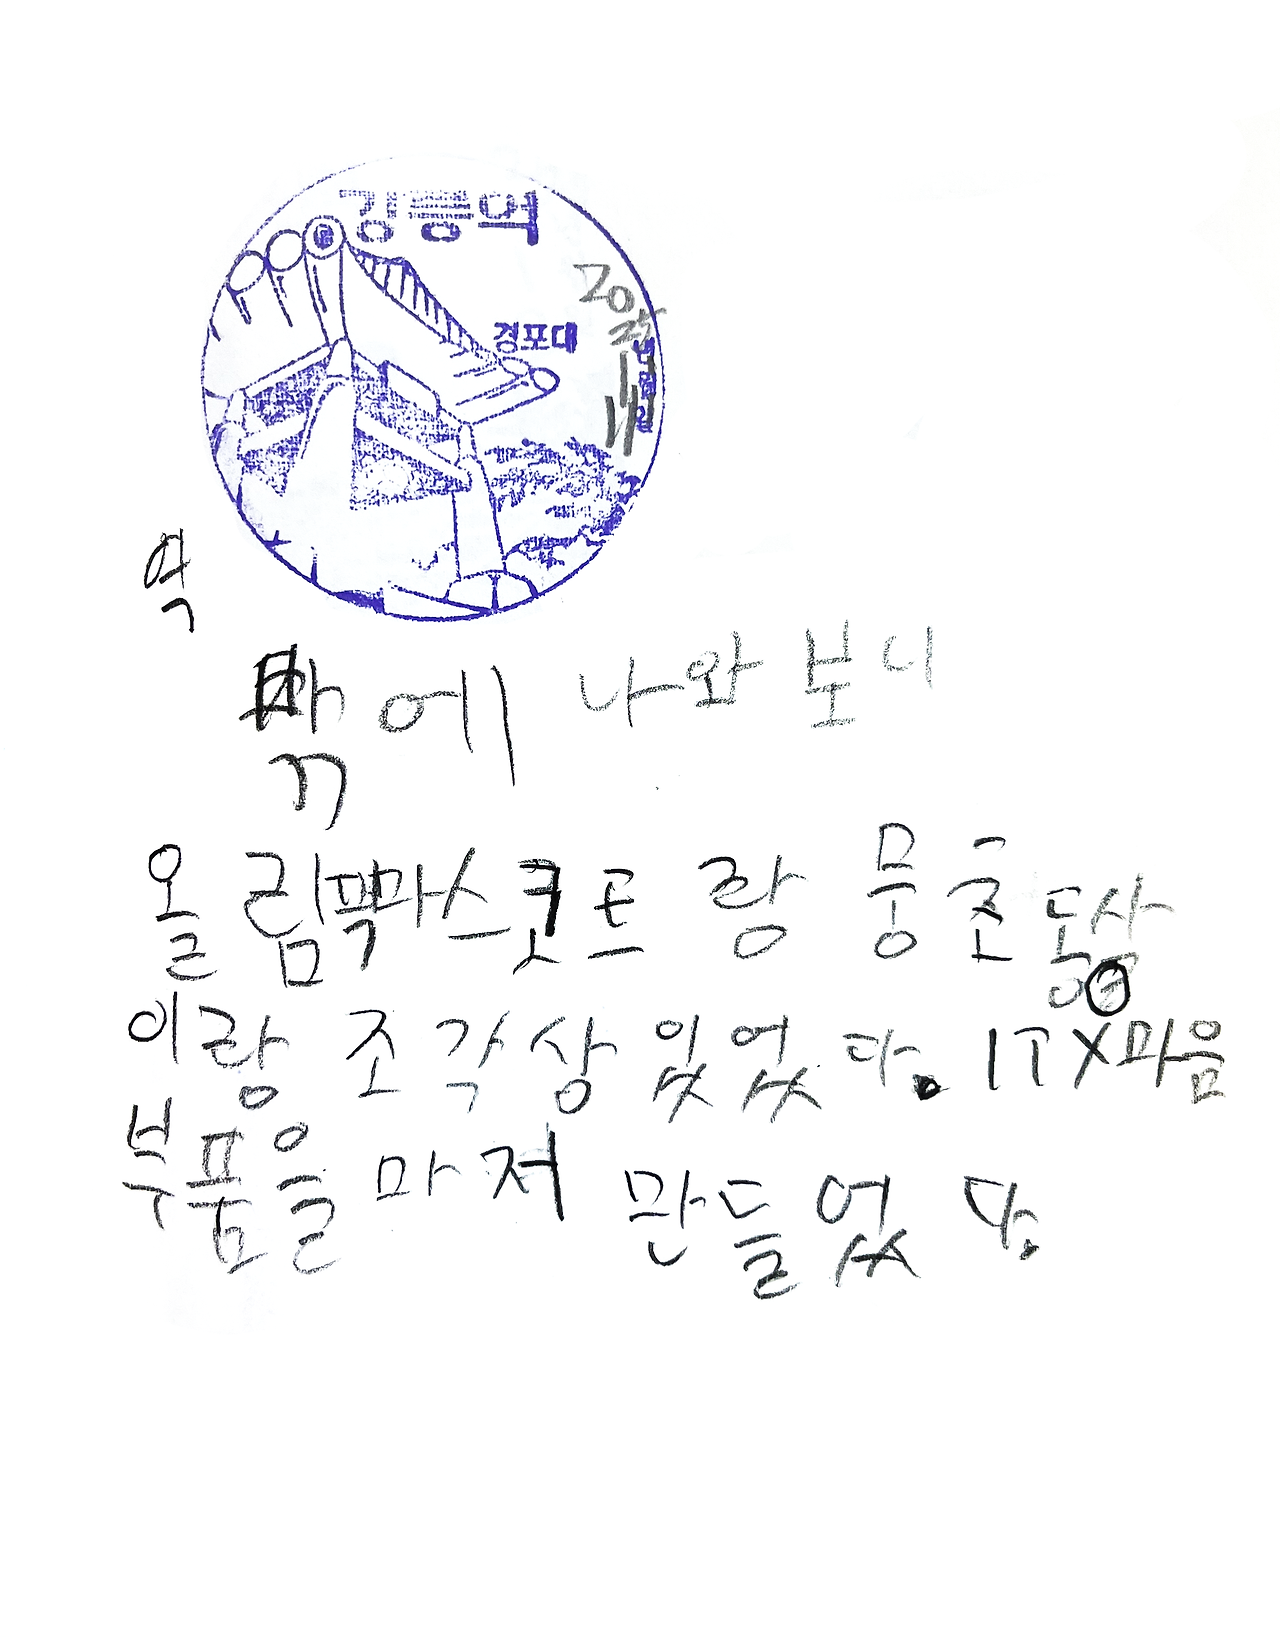 강릉역
경포대
2025년
11월
11일
역
밖에 나와 보니
올림픽마스코트 랑 뭉초 동상
이랑 조각상 있었다. ITX마음
부품을 마저 만들었다.